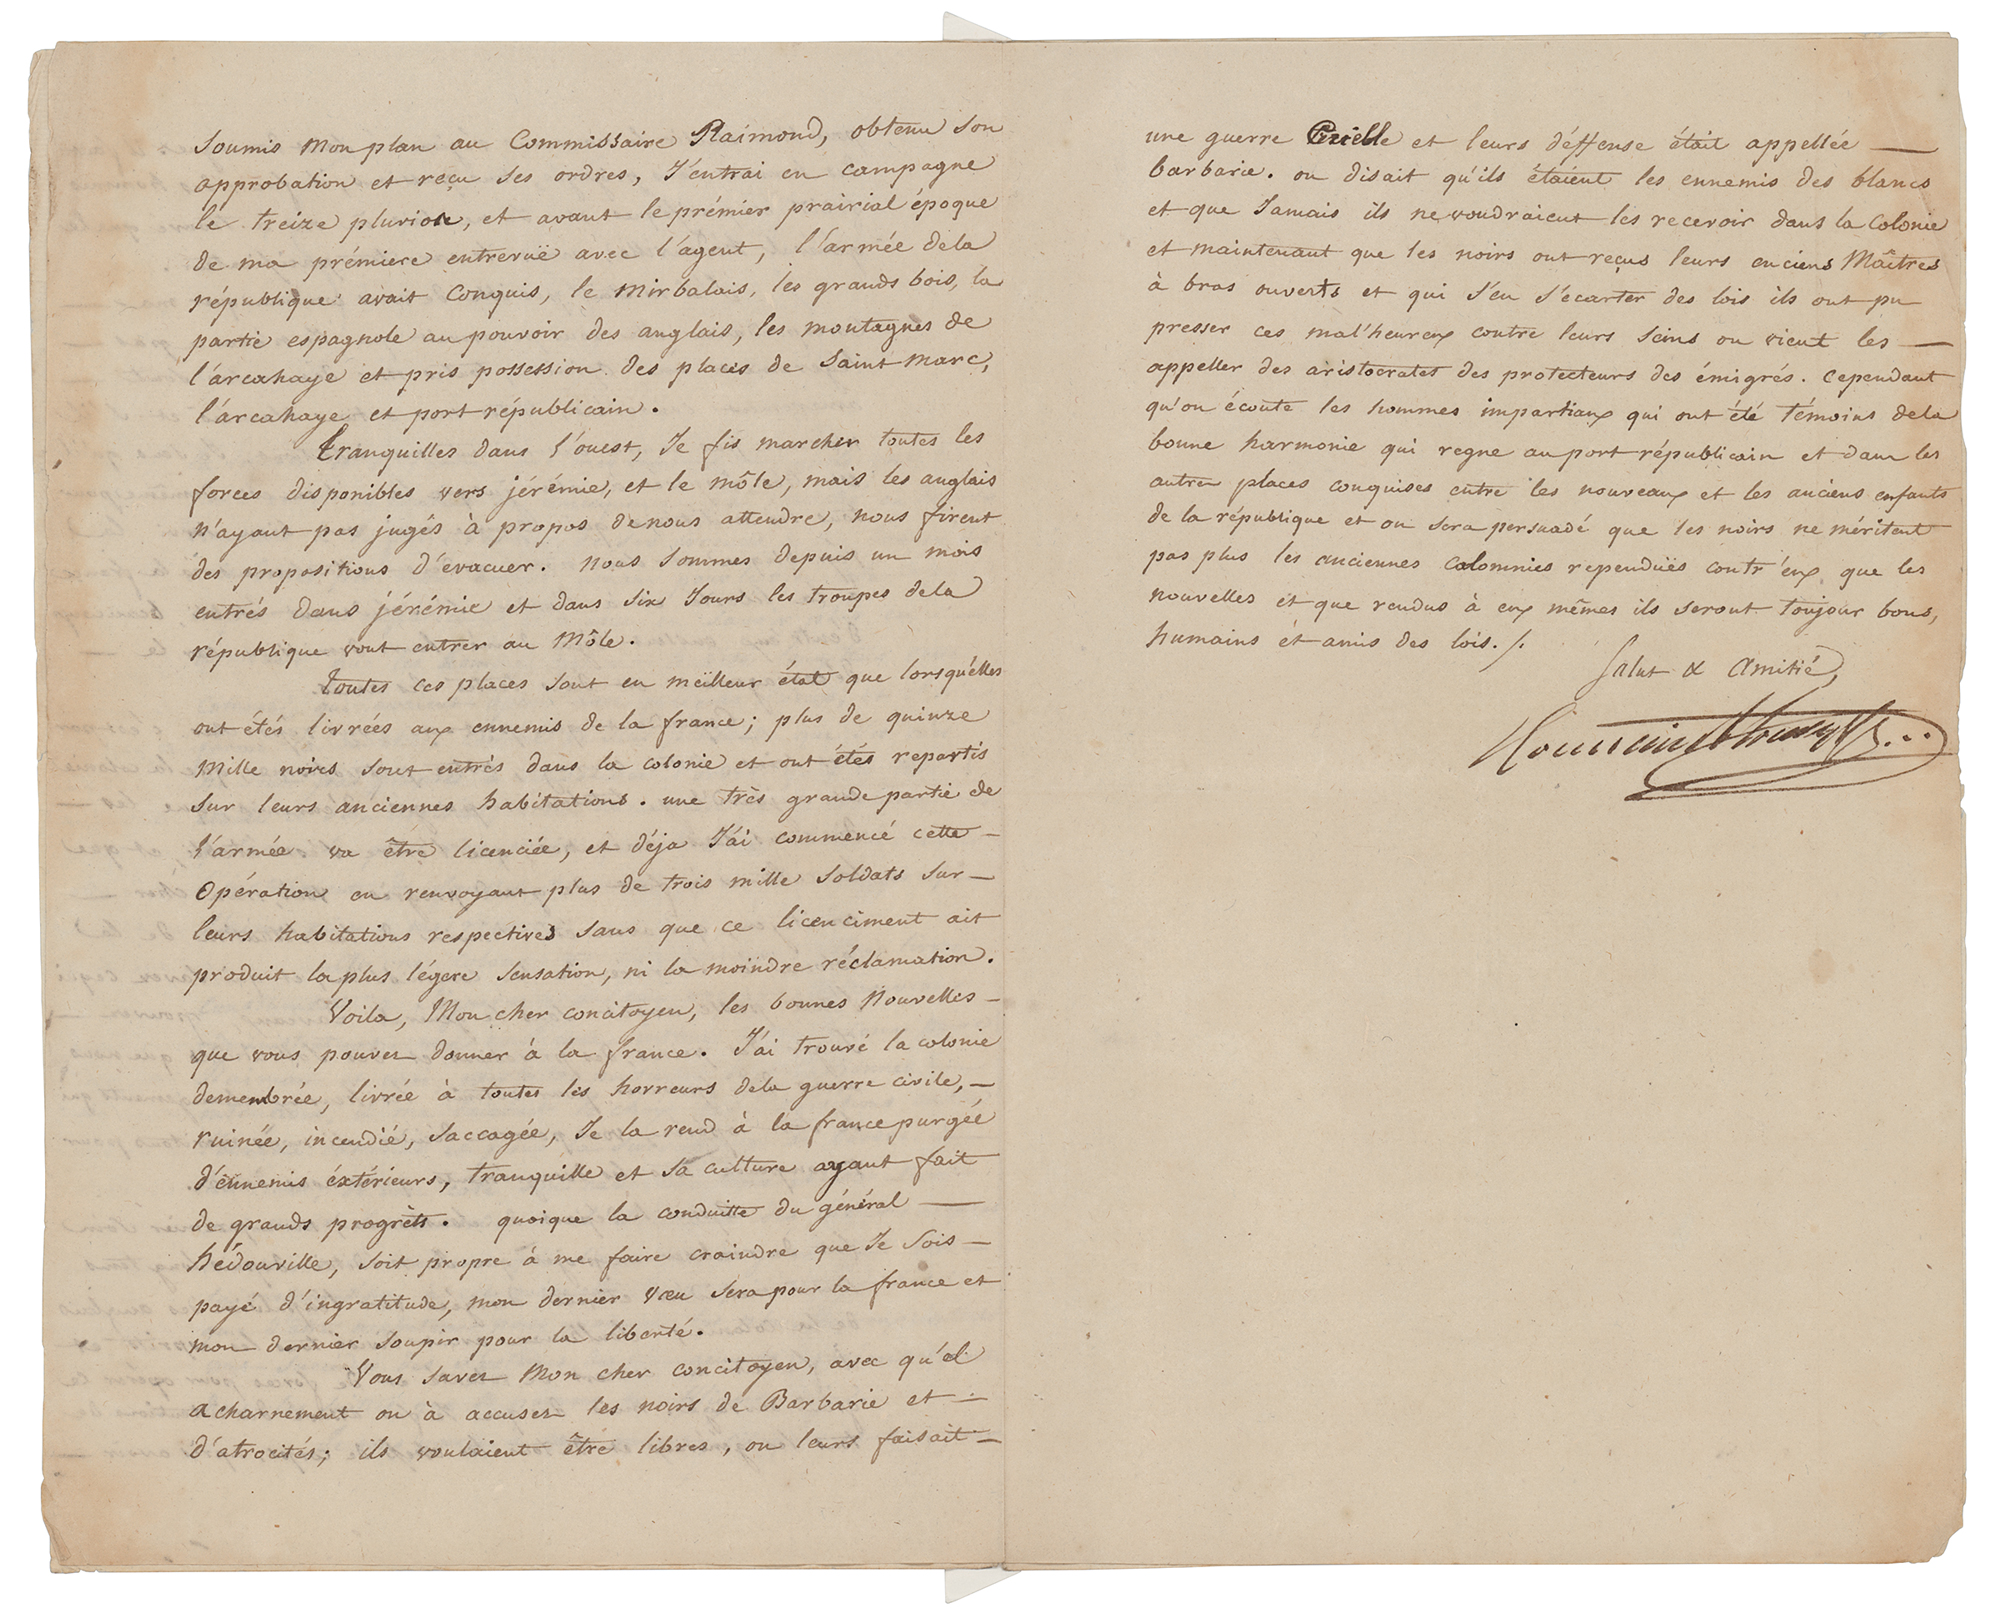 Soumis Mon plan au Commissaire Raimond, obtenu son
approbation et reçu ses ordres, J'entrai en campagne
le treize pluviose, et avant le prémier prairial époque
de ma prémiere entrevuë avec l'agent, l'armée dela
république avait conquis, le Mirbalais, les grands bois, la
partie espagnole au pouvoir des anglais, les montagnes de
l'arcahaye et pris possession des places de Saint Marc,
l'arcahaye et port républicain.
Tranquilles dans l'ouest, Je fis marcher toutes les
forces disponibles vers jérémie, et le môle, mais les anglais
n'ayant pas jugés à propos denous attendre, nous firent
des propositions d'évacuer. nous sommes depuis un mois
entrés dans jérémie et dans six Jours les troupes dela
république vont entrer au Môle.
Toutes ces places sont en meïlleur état que lorsqu'elles
ont étés livrées aux ennemis de la france; plus de quinze
Mille noirs sont entrés dans la colonie et ont étés repartis
sur leurs anciennes habitations. une très grande partie de
l'armée va être licenciée, et déja J'ai commencé cette -
Opération en renvoyant plus de trois mille soldats sur -
leurs habitations respectives sans que ce licenciment ait
produit la plus légere sensation, ni la moindre réclamation.
Voila, Mon cher concitoyen, les bonnes Nouvelles -
que vous pouvez donner à la france. J'ai trouvé la colonie
demembrée, livrée à toutes les horreurs dela guerre civile, -
ruinée, incendié, saccagée, Je la rend à la france purgée
d'énnemis éxtérieurs, tranquille et sa culture ayant fait
de grands progrèts. quoique la conduitte du général —
hédouville, soit propre à me faire craindre que Je sois -
payé d'ingratitude, mon dernier vœu sera pour la france et
mon dernier soupir pour la liberté.
Vous savez Mon cher concitoyen, avec qu'el
acharnement on à accusez les noirs de Barbarie et -
d'atrocités; ils voulaient être libres, on leurs faisait -
une guerre Cruelle et leurs déffense était appellée —
barbarie. on disait qu'ils étaient les ennemis des blancs
et que Jamais ils ne voudraient les recevoir dans la Colonie
et maintenant que les noirs ont reçus leurs enciens Maîtres
à bras ouverts et qui s'en s'ecarter des lois ils ont pu
presser ces mal'heureux contre leurs seins on vient les —
appeller des aristocrates des protecteurs des émigrés. Cependant
qu'on écoute les hommes impartiaux qui ont été témoins dela
bonne harmonie qui regne au port républicain et dans les
autres places conquises entre les nouveaux et les anciens enfants
de la république et on sera persuadé que les noirs ne méritent
pas plus les anciennes calomnies rependuës contr'eux que les
nouvelles et que rendus à eux mêmes ils seront toujour bons,
humains ét amis des lois./.
Salut & Amitié,
Toussaint Louverture